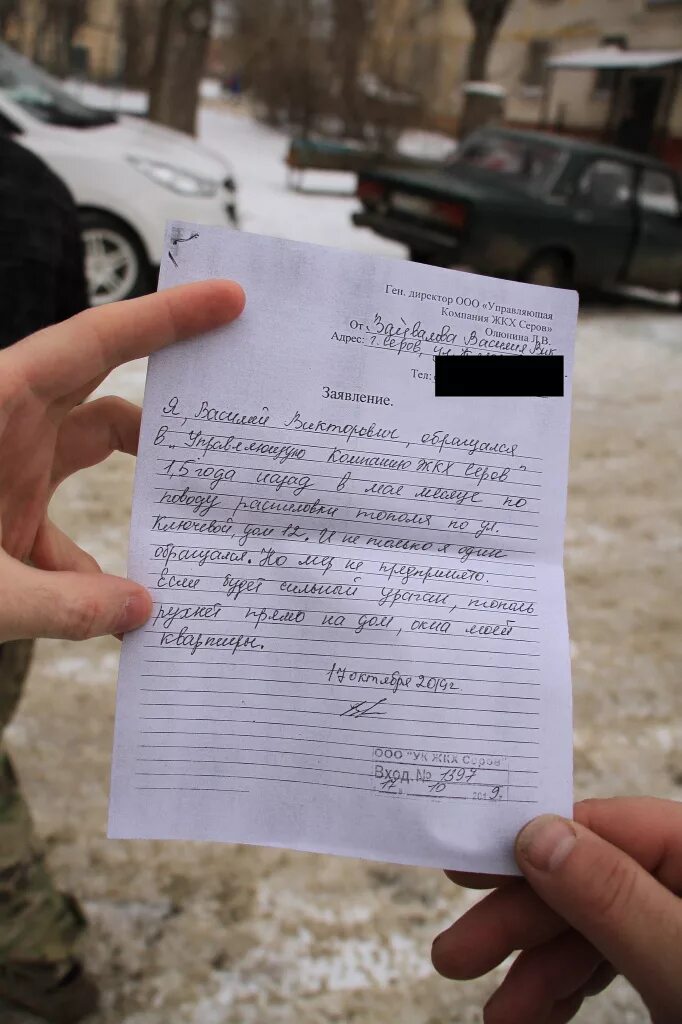 Ген. директор ООО «Управляющая
Компания ЖКХ Серов»
Олюнина Л.В.
От Зайвалова Василия Вик
Адрес: г. Серов, ул.
Тел:
Заявление.
Я, Василий Викторович, обращался
в "Управляющую Компанию ЖКХ Серов"
1,5 года назад в мае месяце по
поводу распиловки тополя по ул.
Ключевой, дом 12. И не только я один
обращался. Но мер не предпринято.
Если будет сильный ураган, тополь
рухнет прямо на дом, окна моей
квартиры.
17 октября 2019г
ООО "УК ЖКХ Серов"
Вход. № 1397
17 10 2019г.